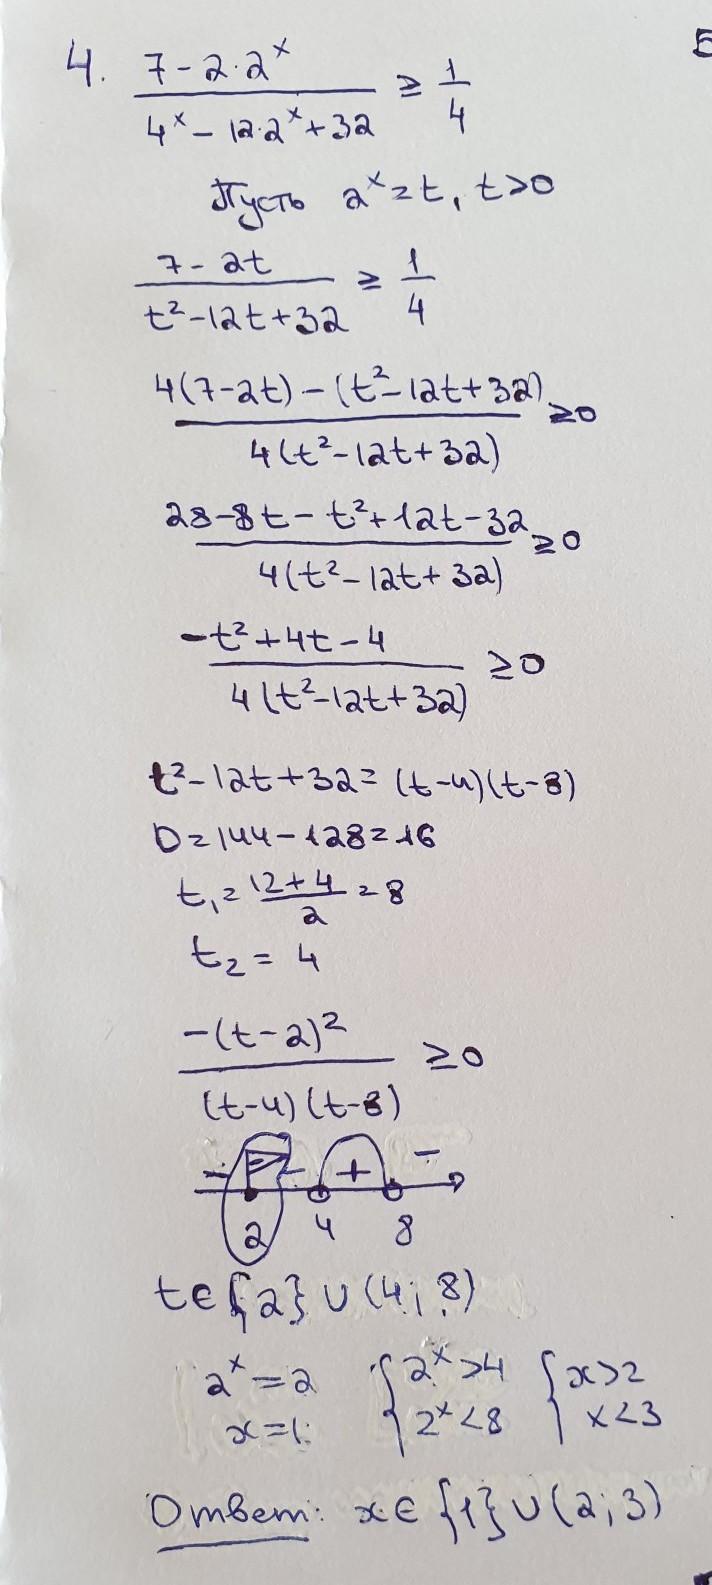 4. (7 - 2·2^x)/(4^x - 12·2^x + 32) ≥ 1/4
Пусть 2^x = t, t>0
(7 - 2t)/(t² - 12t + 32) ≥ 1/4
(4(7-2t) - (t² - 12t + 32))/(4(t² - 12t + 32)) ≥ 0
(28 - 8t - t² + 12t - 32)/(4(t² - 12t + 32)) ≥ 0
(-t² + 4t - 4)/(4(t² - 12t + 32)) ≥ 0
t² - 12t + 32 = (t-4)(t-8)
D = 144 - 128 = 16
t₁ = (12 + 4)/2 = 8
t₂ = 4
(-(t-2)²)/((t-4)(t-8)) ≥ 0
- - + -
2 4 8
t ∈ {2} ∪ (4; 8)
2^x = 2 { 2^x > 4 { x > 2
x = 1 2^x < 8 x < 3
Ответ: x ∈ {1} ∪ (2; 3)